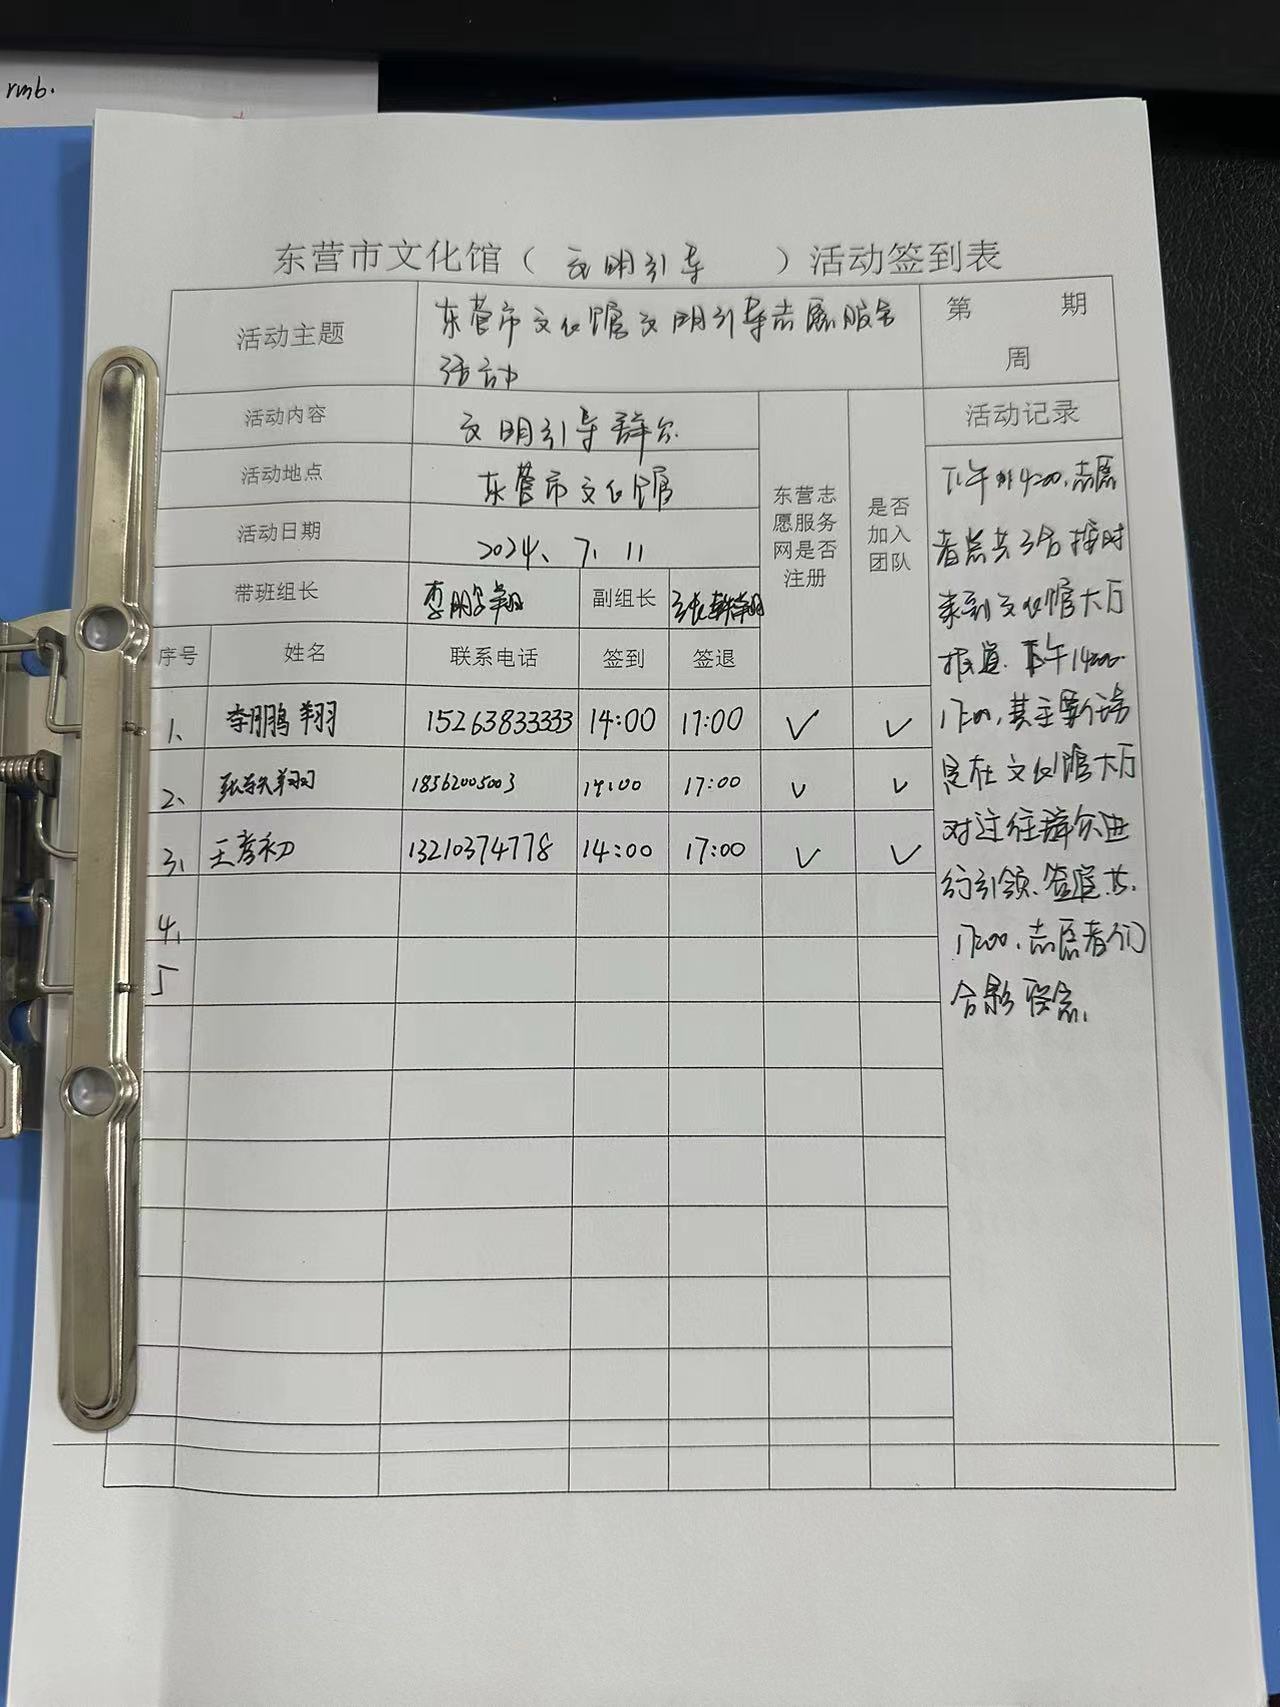 rmb.
东营市文化馆（ 文明引导 ）活动签到表
活动主题
东营市文化馆文明引导志愿服务
活动
第 期
周
活动内容
文明引导群众
活动地点
东营市文化馆
活动日期
2024、7、11
带班组长
李鹏翔
副组长
东营志
愿服务
网是否
注册
是否
加入
团队
活动记录
序号 姓名 联系电话 签到 签退
1、 李鹏翔 15263833333 14:00 17:00 ✓ ✓
2、 18562005003 14:00 17:00 ✓ ✓
3、 王孝初 13210374778 14:00 17:00 ✓ ✓
4、
5
下午14:00,志愿
者总共3名按时
来到文化馆大厅
报道.下午14:00-
17:00,其主要任务
是在文化馆大厅
对过往群众进
行引领.
17:00,志愿者们
合影留念.